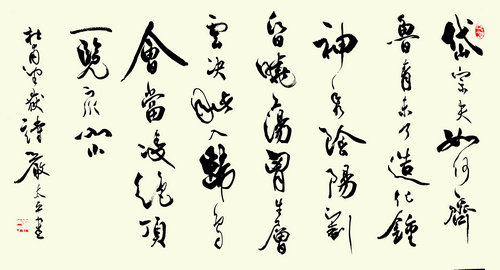 岱宗夫如何齊
魯青未了造化鍾
神秀陰陽割
昏曉蕩胸生層
雲决眦入歸鳥
會當凌絕頂
一覽眾山小
杜甫望嶽詩嚴文書